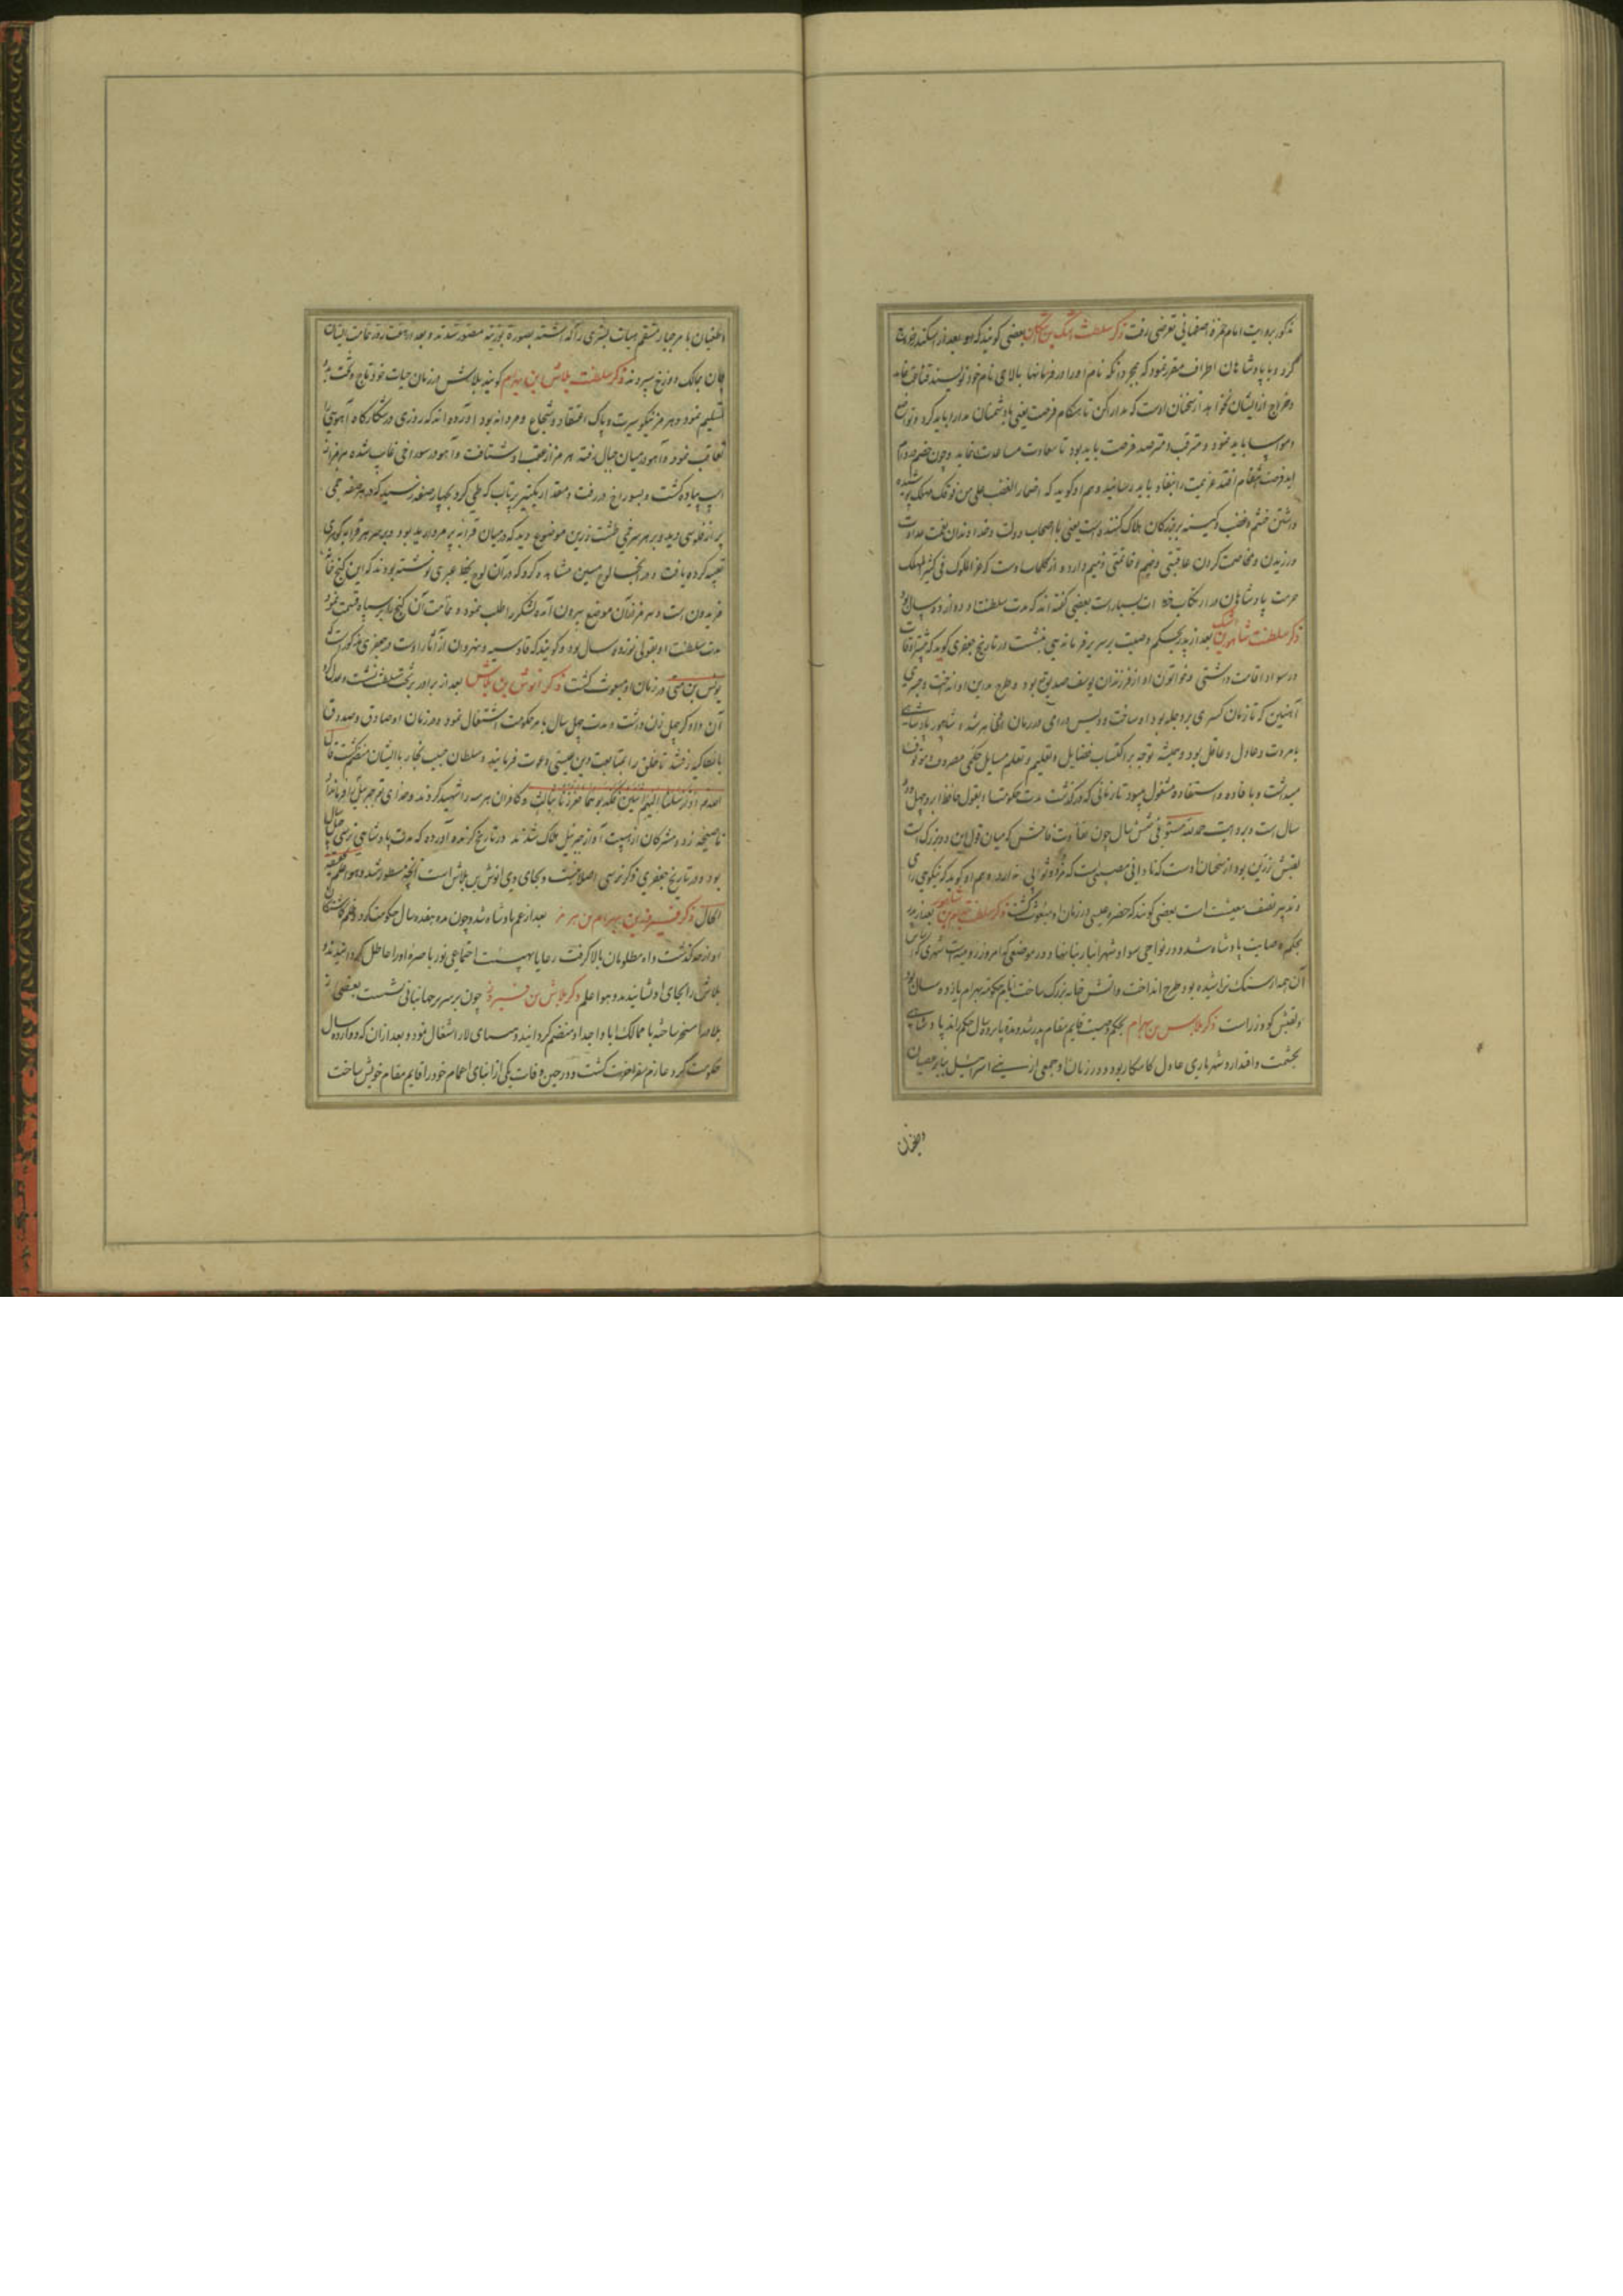 مذکور بروایت امام حمزه اصفهانی تعرضی رفت ذکر سلطنت اشک بن اشکان بعضی گویند که بعد از اسکندر خروج
کرد و با پادشاهان اطراف مقرر نمود که بجرد آنکه نام او را در فرمانها بالای نام خود نویسند قناعت نماید
و خراج از ایشان نخواهد از سخنان اوست که مدارا کن تا هنگام فرصت یعنی با دشمنان مدارا باید کرد و تواضع
و مواسا باید نمود و مترقب و مترصد فرصت باید بود تا سعادت مساعدت نماید و چون
فرصت انتقام افتد عزیمت را بنفاذ باید رسانید و هم او گوید که اضمار الغضب علی من فوقک مهلک پوشیده
داشتن خشم و غضب و کینه بر بزرگان هلاک کننده است یعنی با اصحاب دولت و خداوندان نعمت عداوت
ورزیدن و مخاصمت کردن عاقبتی وخیم و خاتمتی ذمیم دارد و از کلمات اوست که عز الملوک فی
حرمت پادشاهان در ارتکاب است بعضی گفته اند که مدت سلطنت او دوازده سال بود
ذکر سلطنت شاپور بن اشک بعد از پدر بحکم وصیت بر سریر فرماندهی بنشست در تاریخ جعفری گوید که
در سواد اقامت داشتی و خواتون او از فرزندان یوسف صدیق بود و طرح مداین او انداخت و جسری
آهنین که تا زمان کسری بر دجله بود او ساخت و ویس و رامی در زمان او ظاهر شد و شاپور پادشاهی
با مروت و عادل و عاقل بود و همیشه توجه بر اکتساب فضایل و تعلیم و تعلم مسایل حکمی مصروف و موقوف
میداشت و با فاده و استفاده مشغول میبود تا زمانی که در گذشت مدت حکومت او بقول حافظ ابرو چهل و دو
سال است و بروایت حمدالله مستوفی شش سال چون تفاوت فاحش که میان قول این دو بزرگ است
لقبش زرین بود از سخنان اوست که نادانی مصیبتیست که ثوابی ندارد و هم او گوید که نیکوی رای
و تدبیر نصف معیشت است بعضی گویند که حضرت عیسی در زمان او مبعوث گشت ذکر سلطنت بهرام بن شاپور بعد از پدر
بحکم وصایت پادشاه شد و در نواحی سواد شهر انبار بنا نهاد و در موضعی که امروز رومیه است شهری که اساس
آن همه از سنگ تراشیده بود طرح انداخت و آتش خانه بزرگ ساخت ایام حکومت بهرام یازده سال بود
و لقبش کودرز است ذکر بلاش بن بهرام بحکم وصیت قایم مقام پدر شد و مدت پانزده سال حکم راند پادشاهی
بحشمت و اقتدار و شهریاری عادل کامکار بود و در زمان او جمعی از بنی اسرائیل بنابر عصیان
وطغیان
وطغیان بامر جبار منتقم هیات بشری را گذاشته بصورت بوزینه مصور شدند و بعد از هفت روز تمامت ایشان
جان بمالک دوزخ سپردند ذکر سلطنت بلاش ابن بهرام گویند بلاش در زمان حیات خود تاج و تخت بدو
تسلیم نمود و هرمز نیکو سیرت و پاک اعتقاد و شجاع و مردانه بود آورده اند که روزی در شکارگاه آهویی را
تعاقب نمود و آهو در میان جبال رفته هرمز از عقب او شتافت و آهو در سوراخی غایب شده هرمز از
اسپ پیاده گشت و بسوراخ در رفت و مقدار یکتیر پرتاب که طی کرد بچهار صفه رسید که در هر صفه خمی
پر از فلوس دید و بر هر سر خمی طشت زرین موضوع دید که در میان قرابه پر مروارید بود و بر سر هر قرابه گوهری
تعبیه کرده یافت و در آنجا لوح سیمین مشاهده کرد که در آن لوح بخط عبری نوشته بودند که این گنج خاص
فریدون است و هرمز از آن موضع بیرون آمده لشکر را طلب نمود و تمامت آن گنج را بر سپاه قسمت نمود
مدت سلطنت او بقولی نوزده سال بود و گویند که قادسیه و نهروان از آثار اوست و در جعفری مذکور است که
یونس بن متی در زمان او مبعوث گشت ذکر انوش بن بلاش بعد از برادر بر تخت سلطنت نشست و عدل و
آن داد که چهل زن داشت و مدت چهل سال بامر حکومت اشتغال نمود و در زمان او صادق و صدوق
بانطاکیه رفتند تا خلق را بمتابعت دین عیسی دعوت فرمایند و سلطان حبیب نجار با ایشان منضم گشت قال
الله تعالی اذ ارسلنا الیهم اثنین فکذبوهما فعززنا بثالث و کافران هر سه را شهید کردند و خدای تعالی جبرئیل را فرمان داد
تا صیحه زد و مشرکان از هیبت آواز جبرئیل هلاک شدند در تاریخ گزیده آورده که مدت پادشاهی نرسی سال
بود و در تاریخ جعفری ذکر نرسی اصلا نیست و بجای وی انوش بن بلاش است آنچه مسطور شد و هو اعلم بحقیقة
الحال ذکر فیروز بن بهرام بن هرمز بعد از عم پادشاه شد و چون مدت هفده سال حکومت کرد و ظلم
او از حد گذشت و آه مظلومان بالا گرفت رعایا بهیئت اجتماعی نور باصره او را عاطل گردانیدند و
بلاش را بجای او نشانیدند و هو اعلم ذکر بلاش بن فیروز چون بر سریر جهانبانی نشست بعضی از
بلاد را مسخر ساخته با ممالک آبا و اجداد منضم گردانید و بسمای لار اشتغال نمود و بعد از آن که دوازده سال
حکومت کرد عازم سفر آخرت گشت و در حین وفات یکی از ابنای اعمام خود را قایم مقام خویش ساخت